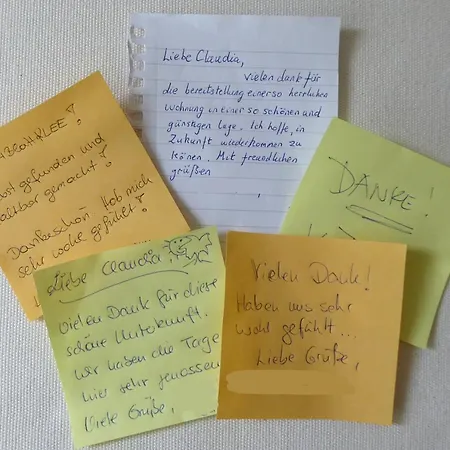 Liebe Claudia,
vielen dank für
die bereitstellung einer so herrlichen
Wohnung in einer so schönen und
günstigen Lage. Ich hoffe, in
Zukunft wiederkommen zu
können. Mit freundlichen
grüßen
KLEE!
gefunden und
haltbar gemacht!
Dankeschön Hab mich
sehr wohl gefühlt!
DANKE!
Liebe Claudia
Vielen Dank für diese
schöne Unterkunft.
Wir haben die Tage
hier sehr genossen
Viele Grüße,
Vielen Dank!
Haben uns sehr
wohl gefühlt...
Liebe Grüße,